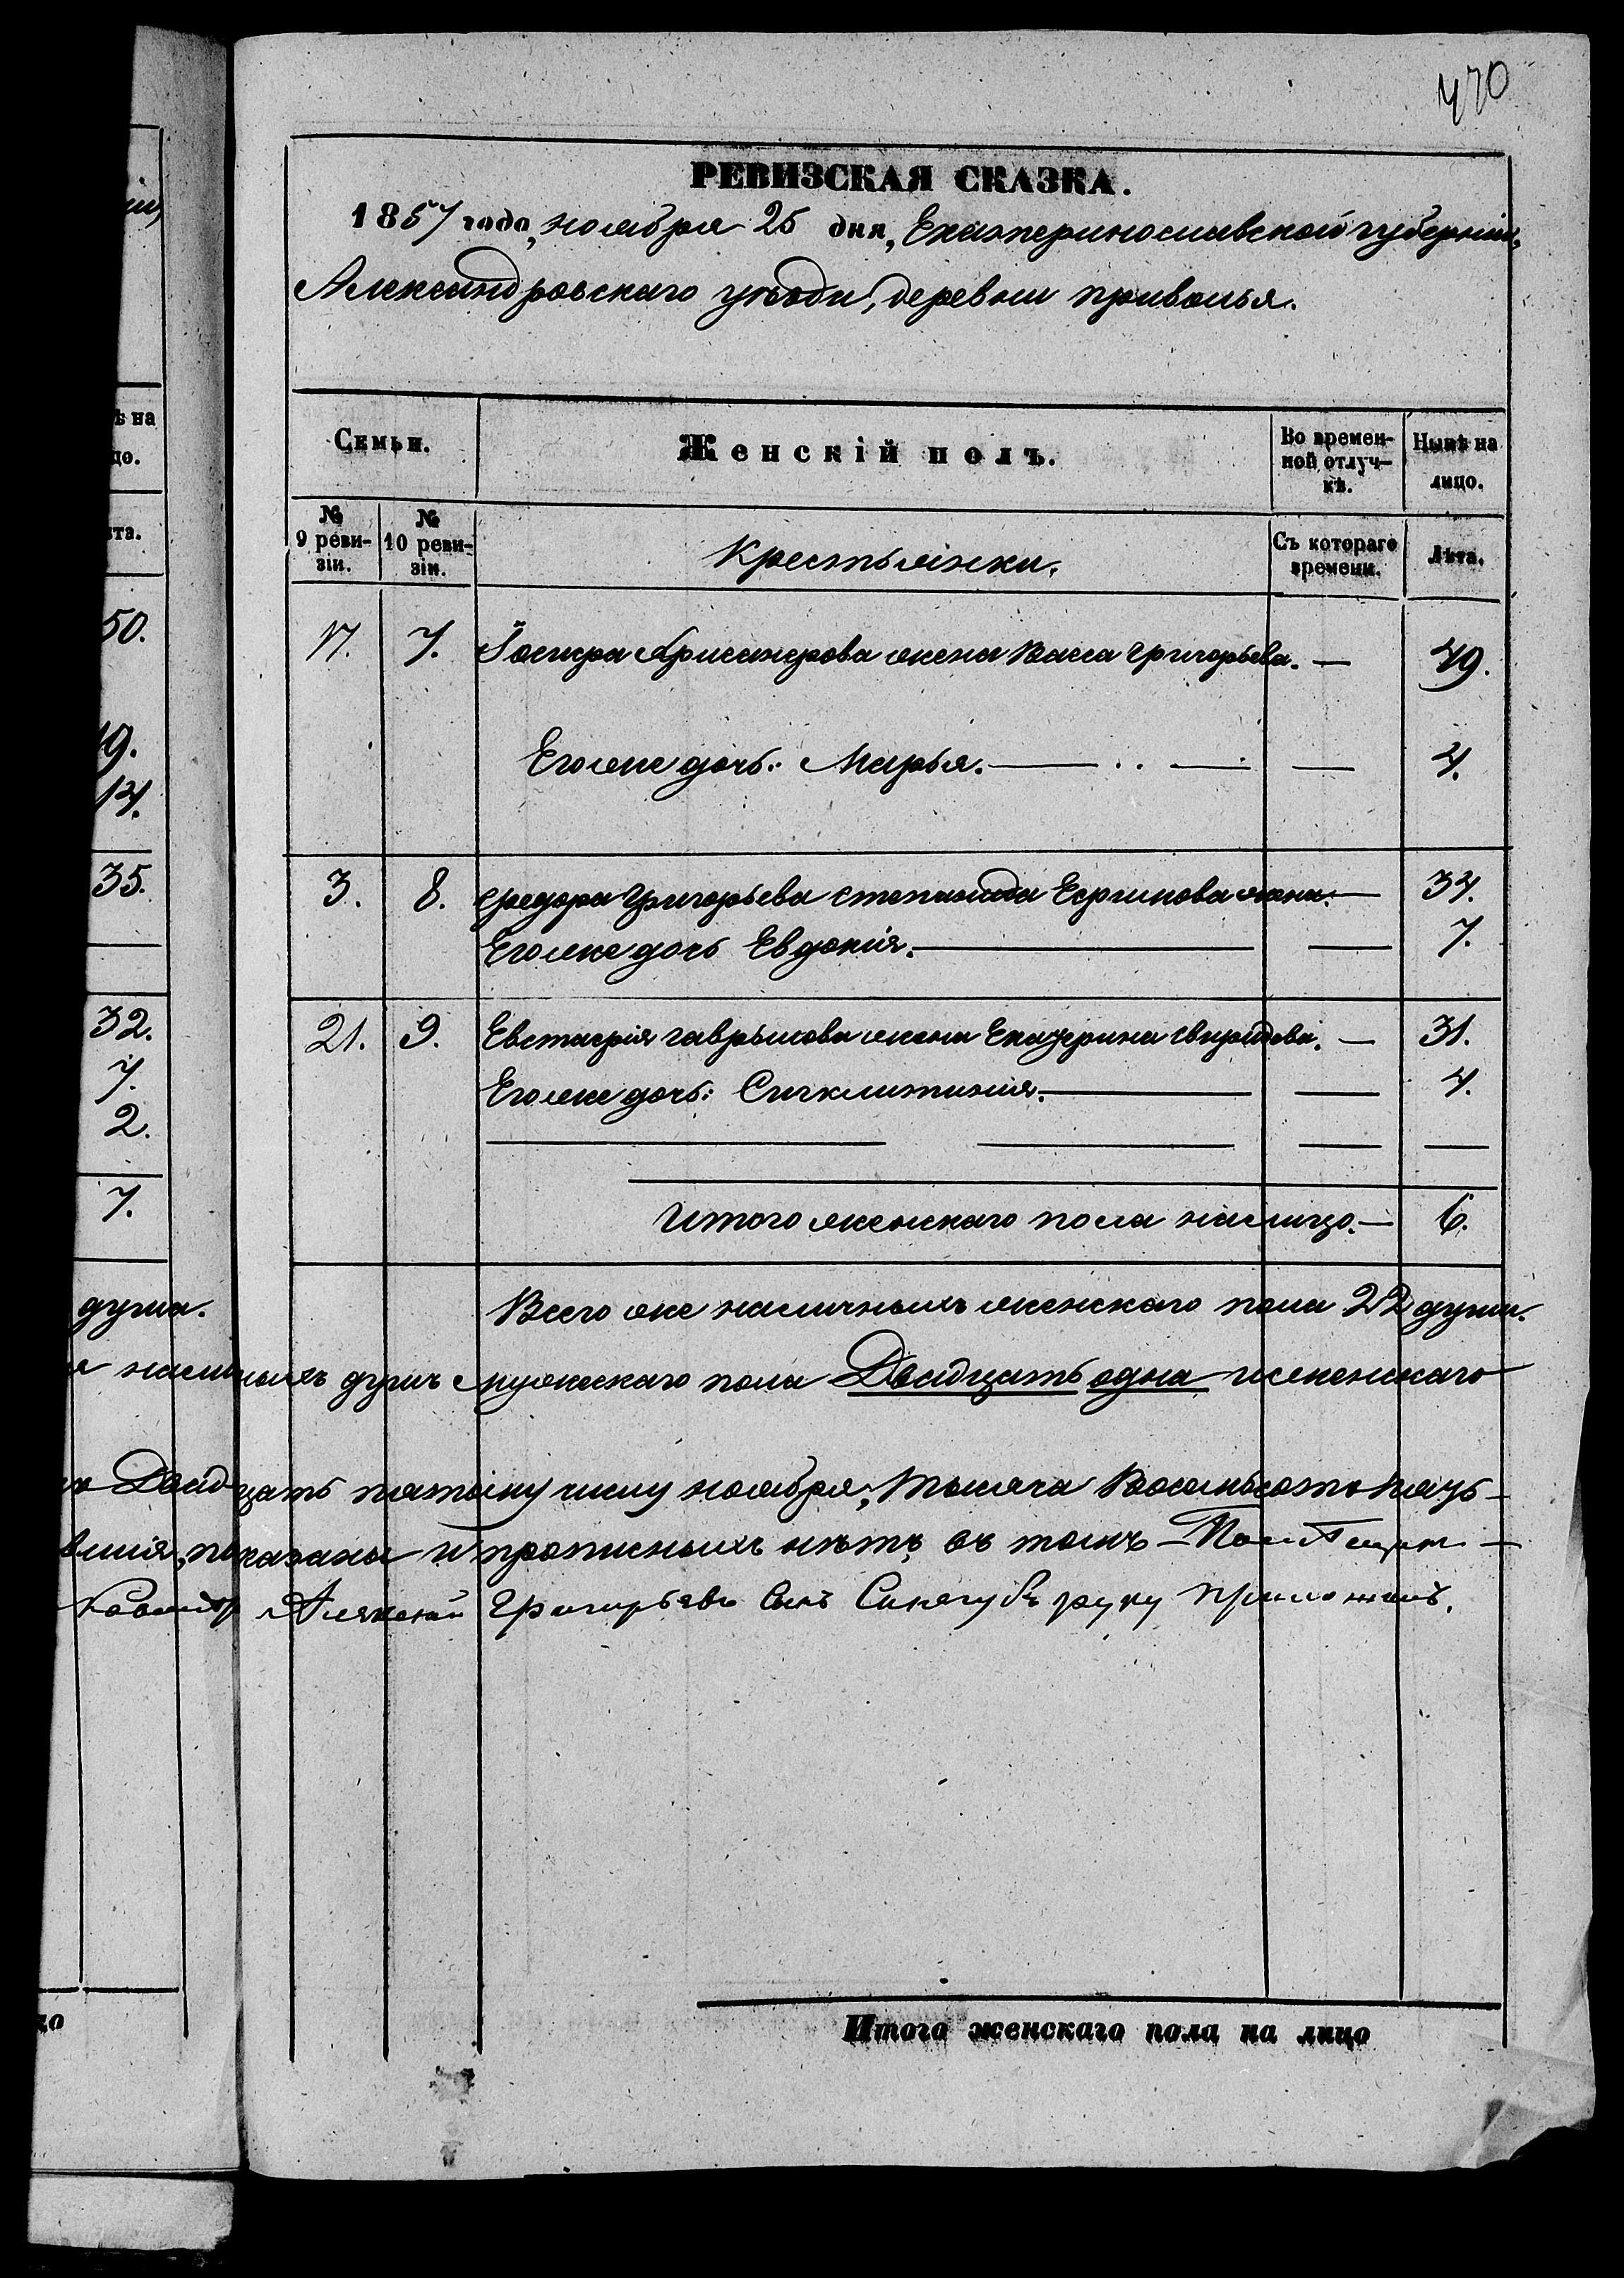 470
РЕВИЗСКАЯ СКАЗКА.
1857 года, ноября 25 дня, Екатеринославской губерніи,
Александровскаго уѣзда, деревни привольья.
Семьи.
Женскій полъ.
Во времен-
ной отлуч-
кѣ.
Нынѣ на
лицо.
№
9 реви-
зіи.
№
10 реви-
зіи.
Крестьянки.
Съ котораго
времени.
Лѣта.
17. 7. жена Васса григорьева. — 49.
Его же дочь: Марья. — 4.
3. 8. Федора григорьева степанида жена. — 34.
Его же дочь Евдокія. — 7.
21. 9. Евстафія гаврилова жена Екатерина свиридова. — 31.
Его же дочь: Сигклитикія. — 4.
Итого женскаго пола налицо. — 6.
Всего же наличныхъ женскаго пола 22 души.
наличныхъ душъ мужескаго пола Двадцать одна и женскаго
Двадцать пятому числу ноября, Тысяча Восемьсотъ пять-
показаны и прописныхъ нѣтъ въ томъ —
Алексѣй Григорьевъ Сынъ Синегубъ руку приложилъ.
Итого женскаго пола на лицо
ѣ на
цо.
та.
50.
19.
14.
35.
32.
7.
2.
7.
душа.